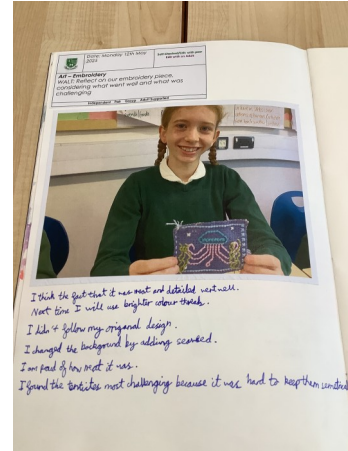 Date: Monday 12th May 2024
Art – Embroidery
WALT: Reflect on our embroidery piece, considering what went well and what was challenging
Independent Pair Group Adult Supported
I think the fact that it was neat and detailed went well.
Next time I will use brighter colour thread.
I didn't follow my origonal design.
I changed the background by adding seaweed.
I am proud of how neat it was.
I found the tenticles most challenging because it was hard to keep them